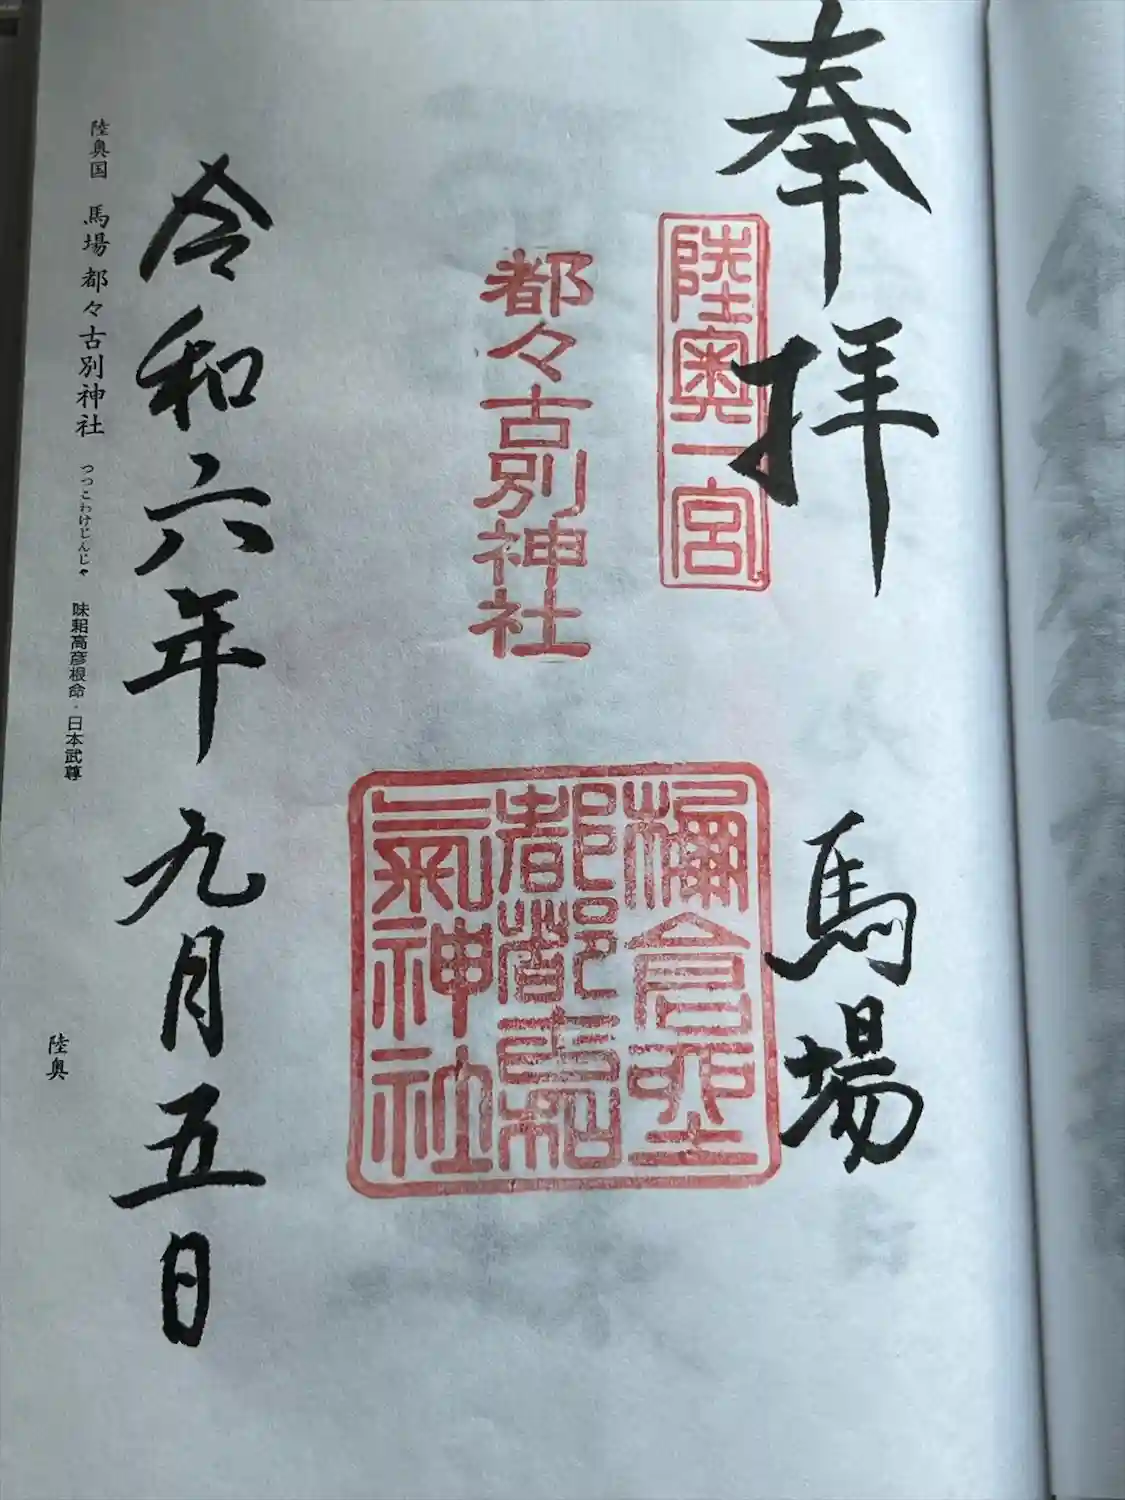 奉拝 馬場
陸奥一宮
都々古別神社
棚倉
都都古和
氣神社
令和六年九月五日
陸奥国 馬場都々古別神社 つつこわけじんじゃ 味耜高彦根命・日本武尊
陸奥